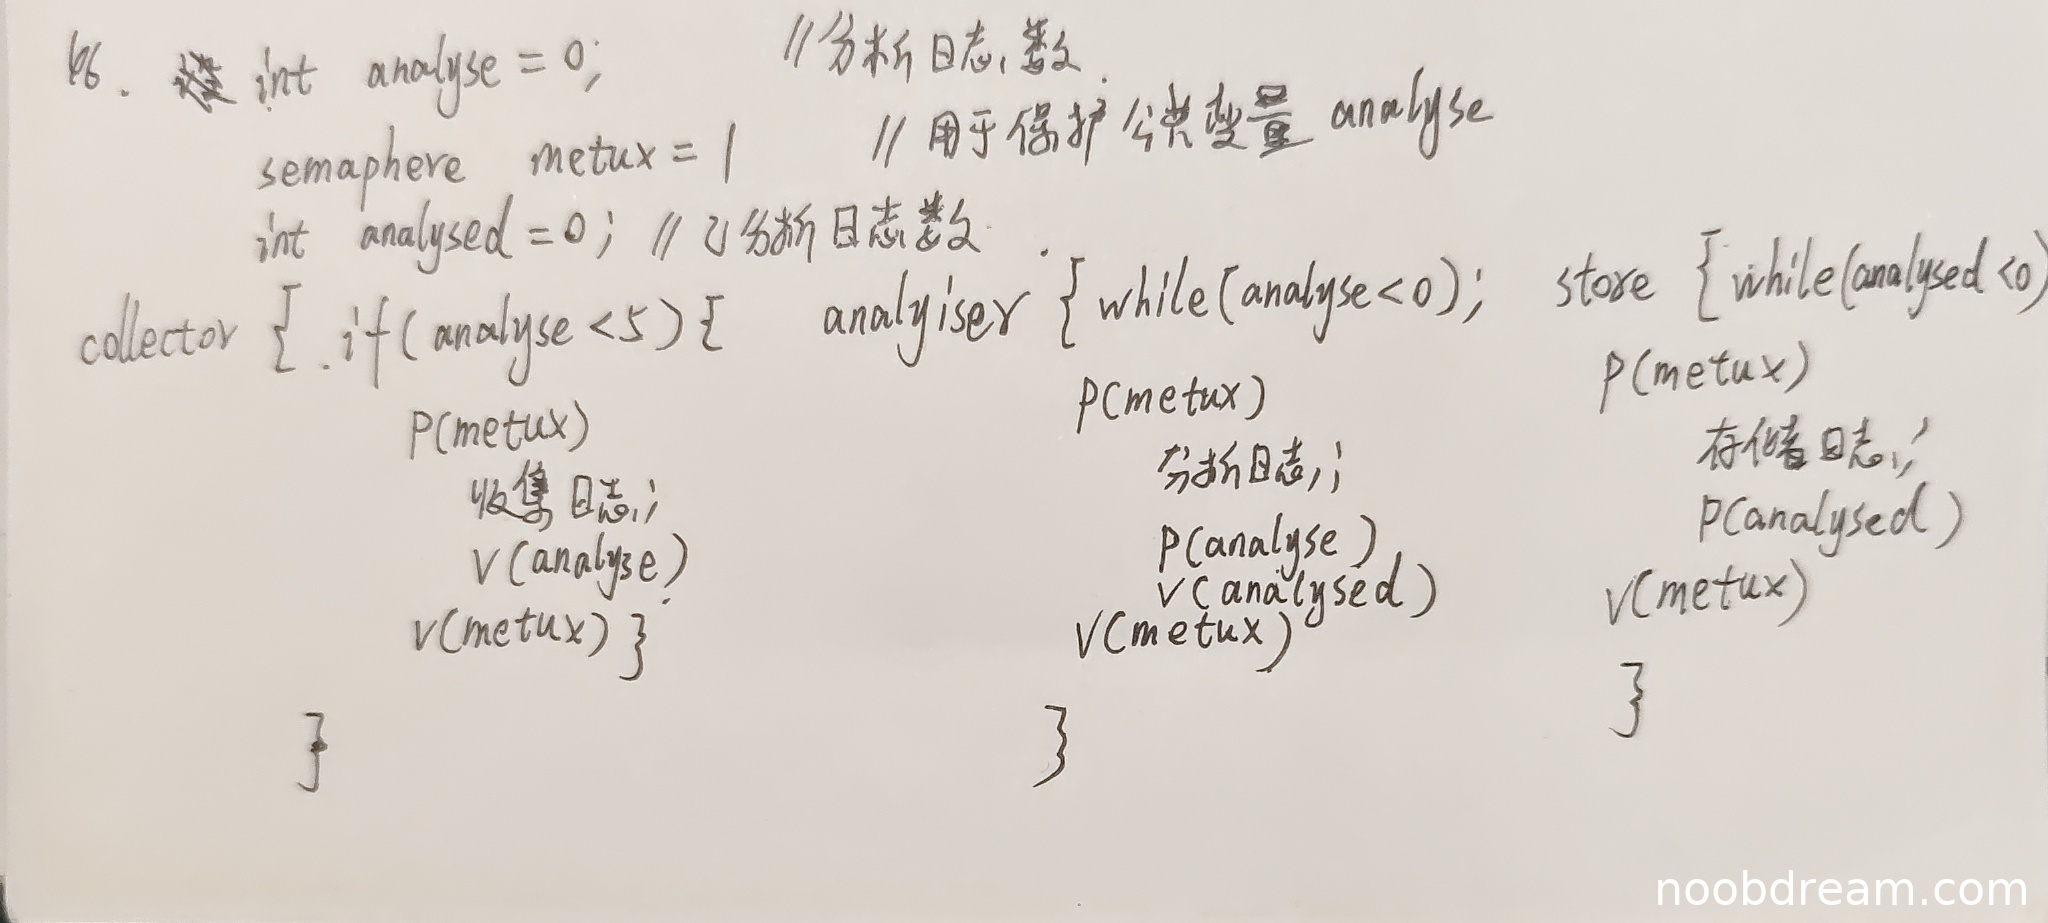 46. int analyse = 0; //分析日志数.
semaphere metux = 1 //用于保护公共变量 analyse
int analysed = 0; //已分析日志数.
collector { if(analyse<5){
P(metux)
收集日志;
V(analyse)
V(metux) }
}
analyiser { while(analyse<0);
P(metux)
分析日志;
P(analyse)
V(analysed)
V(metux)
}
store { while(analysed<0)
P(metux)
存储日志;
P(analysed)
V(metux)
}
noobdream.com